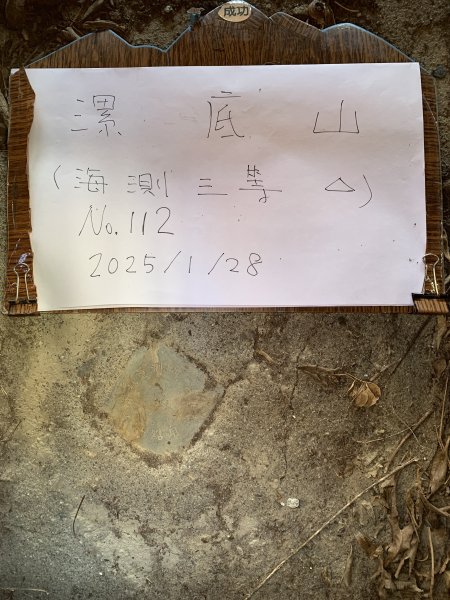 成功
漯底山
(海測三等△)
No.112
2025/1/28